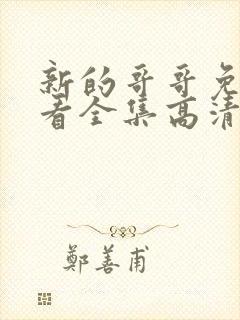 新的哥哥免
看全集高清
鄭善甫